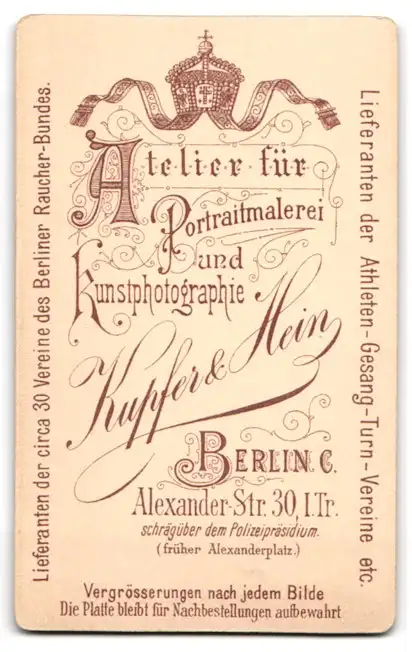 Atelier für
Portraitmalerei
und
Kunstphotographie
Kupfer & Hein
BERLIN. C.
Alexander-Str. 30, I.Tr.
schrägüber dem Polizeipräsidium.
(früher Alexanderplatz.)
Vergrösserungen nach jedem Bilde
Die Platte bleibt für Nachbestellungen aufbewahrt
Lieferanten der circa 30 Vereine des Berliner Raucher-Bundes.
Lieferanten der Athleten-Gesang-Turn-Vereine etc.